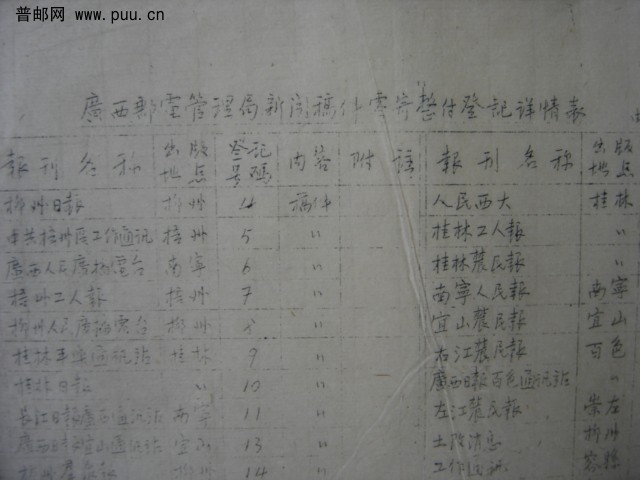 普邮网 www.puu.cn
廣西郵電管理局新闻稿件零寄整付登記详情表
報刊名称 出版地点 登記号碼 内容 附註 報刊名称 出版地点
柳州日報 柳州 4 稿件 人民西大 桂林
中共梧州区工作通讯 梧州 5 〃 桂林工人報 〃
廣西人民廣播電台 南寧 6 〃 桂林農民報
梧州工人報 梧州 7 〃 南寧人民報 南寧
柳州人民廣播電台 柳州 8 〃 宜山農民報 宜山
桂林 通訊站 桂林 9 〃 右江農民報 百色
桂林日報 〃 10 〃 廣西日報百色通訊站 〃
長江日報廣西通訊站 南寧 11 〃 左江農民報 崇左
廣西日報宜山通訊站 宜山 13 〃 土改消息 柳州
柳州 14 〃 工作通訊 容縣